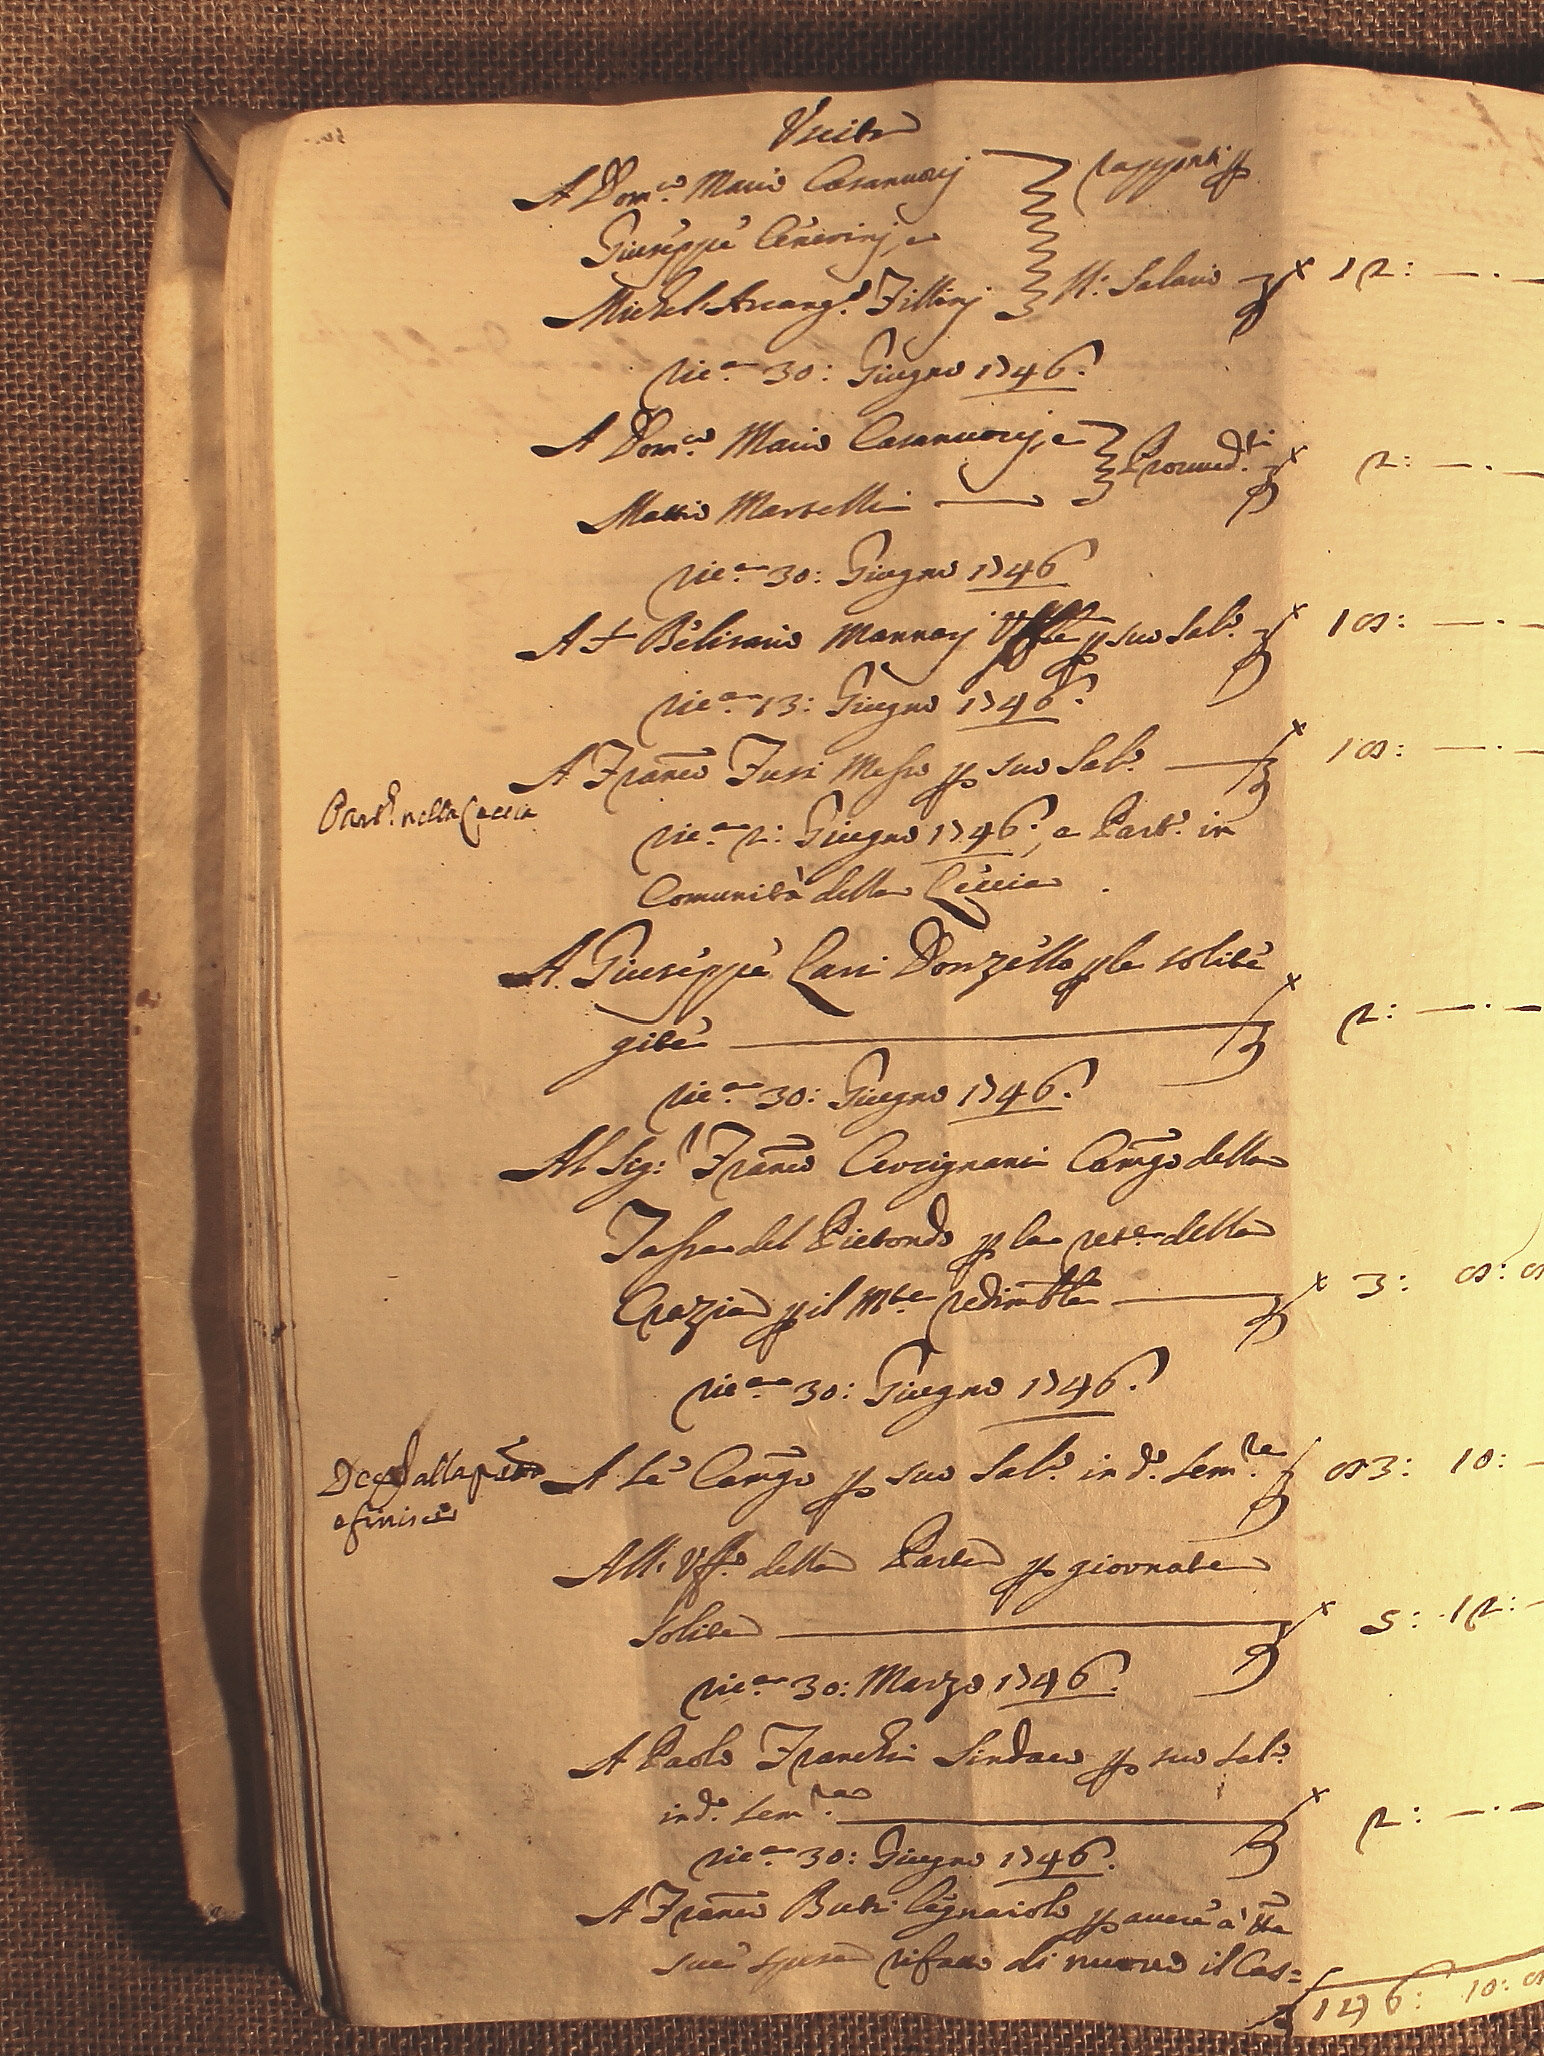 Uscita
A Dom.co Maria Casanuovj
Giuseppe Cenerinj, e
Michel Arcang.o Fillinj li Salario 12: —.
ric.a 30: Giugno 1746.
A Dom.co Maria Casanuovj, e
Mattio Martelli — Provved.ri 2: —.
ric.a 30: Giugno 1746
A + Belisario Mannaj p suo Sal.o 10: —.
ric.a 13: Giugno 1746.
A Franco Fusi Messo p suo Sal.o — 10: —.
Part.o nella Ceccia
ric.a 2: Giugno 1746., e Part.o in
Comunità della Ceccia
A Giuseppe Lari Donzello p le solite
gite — 2: —. —
ric.a 30: Giugno 1746.
Al Sig:r Franco Cevcignani Camgo della
Tassa del Pietondo p la rata della
Crazia p il Mte redimble — 3:
ric.a 30: Giugno 1746.
A Se Camgo p suo Sal.o in d.o Sem.re 3: 10: —
Alli Uff. della Parte p giornate
solite — 5: 12: —
ric.a 30: Marzo 1746.
A Paolo Franchi Sindaco p suo Sal.o
in d.o Sem.re — 2: —. —
ric.a 30: Giugno 1746.
A Franco Buti legnaiolo p avere à tte
sue spese rifatto di nuovo il Cas=